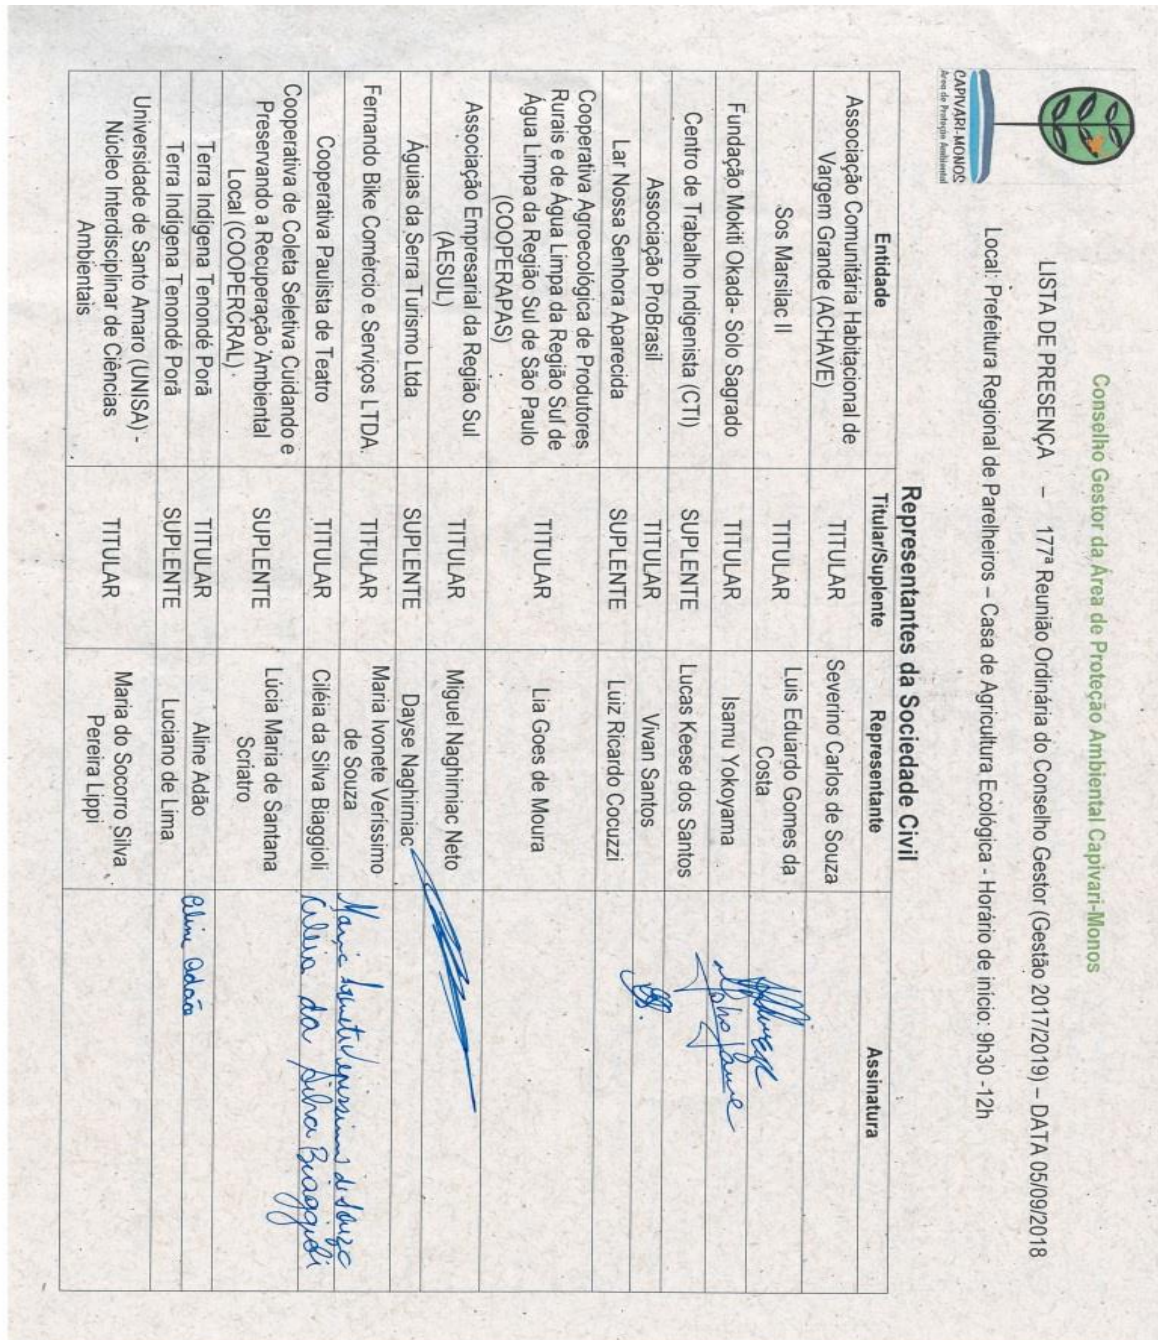 Conselho Gestor da Área de Proteção Ambiental Capivari-Monos
CAPIVARI-MONOS
Área de Proteção Ambiental
LISTA DE PRESENÇA – 177ª Reunião Ordinária do Conselho Gestor (Gestão 2017/2019) – DATA 05/09/2018
Local: Prefeitura Regional de Parelheiros – Casa de Agricultura Ecológica - Horário de início: 9h30 -12h
Representantes da Sociedade Civil
Entidade Titular/Suplente Representante Assinatura
Associação Comunitária Habitacional de
Vargem Grande (ACHAVE) TITULAR Severino Carlos de Souza
Sos Marsilac II TITULAR Luis Eduardo Gomes da
Costa
Fundação Mokiti Okada- Solo Sagrado TITULAR Isamu Yokoyama
Centro de Trabalho Indigenista (CTI) SUPLENTE Lucas Keese dos Santos
Associação ProBrasil TITULAR Vivan Santos
Lar Nossa Senhora Aparecida SUPLENTE Luiz Ricardo Cocuzzi
Cooperativa Agroecológica de Produtores
Rurais e de Água Limpa da Região Sul de
Água Limpa da Região Sul de São Paulo
(COOPERAPAS) TITULAR Lia Goes de Moura
Associação Empresarial da Região Sul
(AESUL) TITULAR Miguel Naghirniac Neto
Águias da Serra Turismo Ltda SUPLENTE Dayse Naghirniac
Fernando Bike Comércio e Serviços LTDA. TITULAR Maria Ivonete Veríssimo
de Souza Maria Ivonete Verissimo de Souza
Cooperativa Paulista de Teatro TITULAR Ciléia da Silva Biaggioli Cileia da Silva Biaggioli
Cooperativa de Coleta Seletiva Cuidando e
Preservando a Recuperação Ambiental
Local (COOPERCRAL) SUPLENTE Lúcia Maria de Santana
Scriatro
Terra Indígena Tenondé Porã TITULAR Aline Adão Aline Adão
Terra Indígena Tenondé Porã SUPLENTE Luciano de Lima
Universidade de Santo Amaro (UNISA) -
Núcleo Interdisciplinar de Ciências
Ambientais TITULAR Maria do Socorro Silva
Pereira Lippi